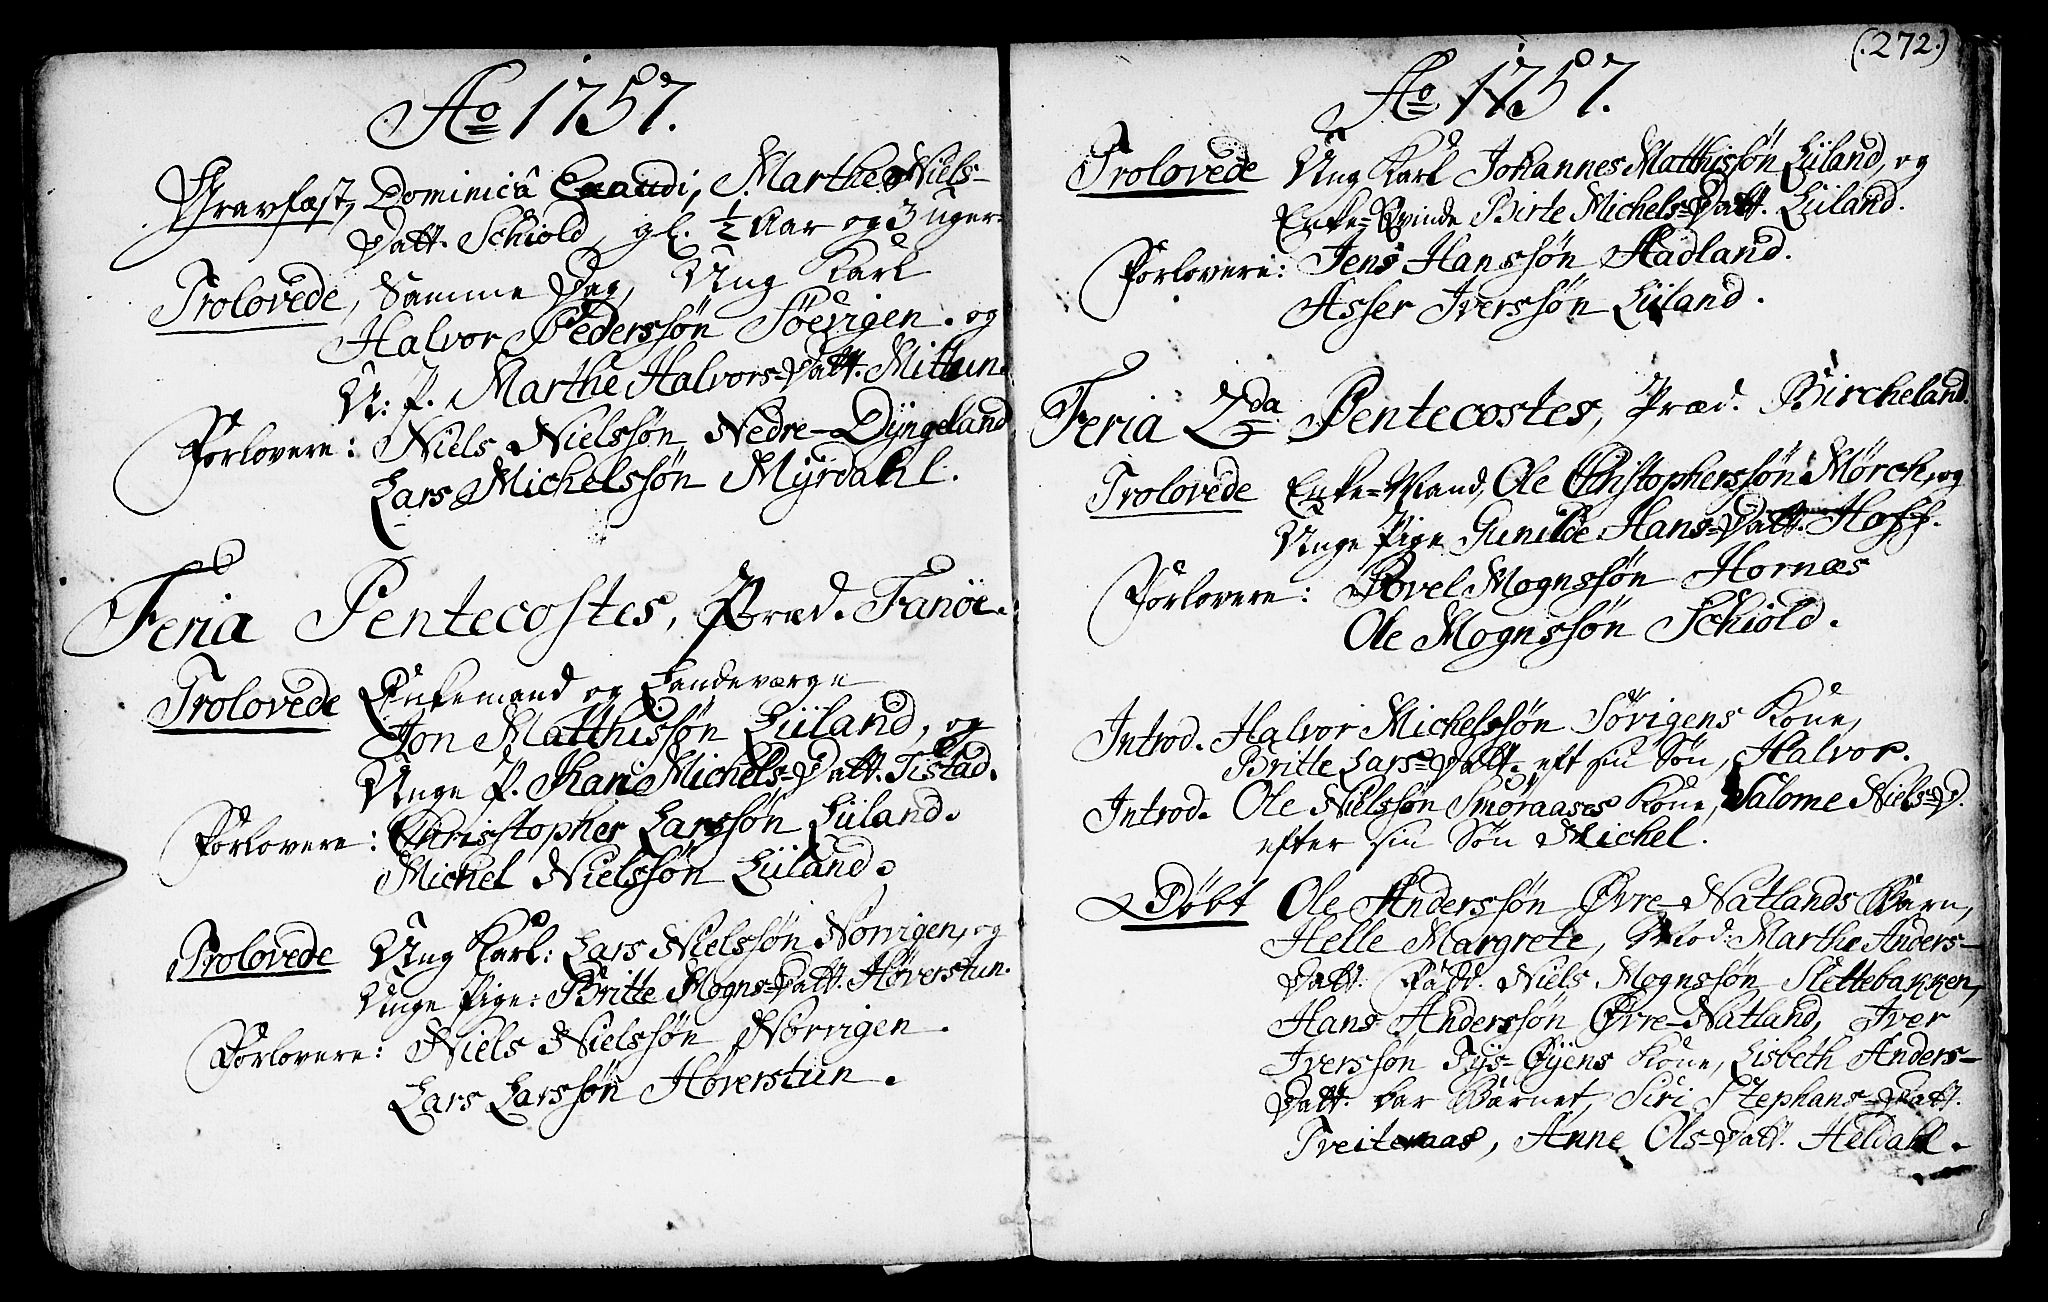 Ao 1757.
Gravfæst, Dominicâ Exaudi, Marthe Niels-
Datt. Schiold, gl. ½ Aar og 3 uger.
Trolovede, Samme Dag, Ung Karl
Halvor Pederssøn Søevigen. og
U: P. Marthe Halvors-Datt. Mittun.
Forlovere: Niels Nielssøn Nedre-Dÿngeland
Lars Michelssøn Mÿrdahl.
Feria Pentecostes, Præd. Fanöe.
Trolovede Enkemand og Landeværge
Jon Matthissøn Liiland, og
Unge P. Kari Michels-Datt. Tistad.
Forlovere: Christopher Larssøn Liiland.
Michel Nielssøn Liiland.
Trolovede Ung Karl: Lars Nielssøn Norvigen, og
Unge Pige: Britte Mogns-Datt. Høverstun.
Forlovere: Niels Nielssøn Norvigen.
Lars Larssøn Høverstun.
(272.)
Ao 1757.
Trolovede Ung Karl Johannes Matthissøn Liiland, og
Enke-Qvinde Birte Michels-Datt. Liiland.
Forlovere: Jens Hanssøn Hadland.
Asser Iverssøn Liiland.
Feria 2da Pentecostes, Præd. Bircheland.
Trolovede Enke-Mand, Ole Christopherssøn Mørch, og
Unge Pige Gunilde Hans-Datt. Hoff.
Forlovere: Povel Mognssøn Hornæs
Ole Mognssøn Schiold.
Introd. Halvor Michelssøn Sørigens Kone,
Britte Lars-Datt. eft sin Søn, Halvor.
Introd. Ole Nielssøn Smøraases Kone, Salome Niels-D.
efter sin Søn Michel.
Døbt Ole Anderssøn Øvre-Natlands Barn,
Helle Margrete, Mod: Marthe Anders-
Datt. Fadd. Niels Mognssøn Slettebakken,
Hans Anderssøn Øvre-Natland, Iver
Iverssøn Tÿs-Øÿens Kone, Lisbeth Anders-
Datt. bar Barnet, Siri Stephans-Datt.
Tveiteraas, Anne Ols-Datt. Heldahl.